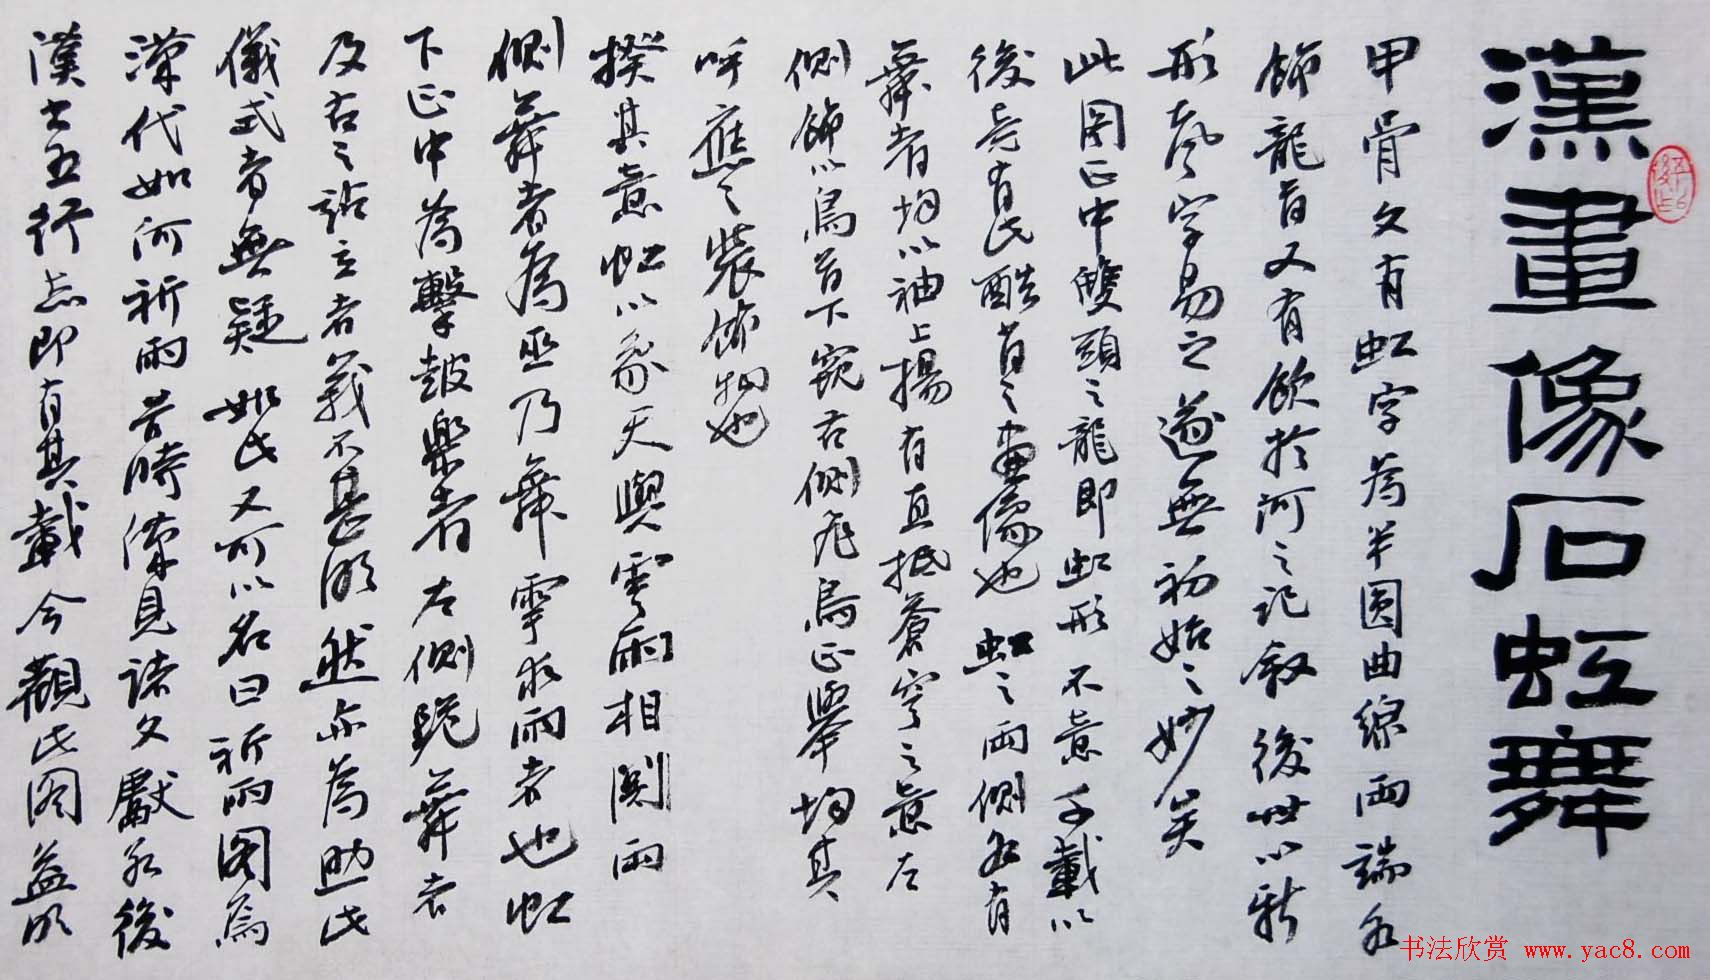 漢畫像石虹舞
甲骨文有虹字為半圓曲線兩端各
飾龍首又有飲於河之記敘後世以新
形聲字易之遂無初始之妙矣
此图正中雙頭之龍即虹形不意千載以
後竟有此酷肖之畫像也虹之兩側各有
舞者均以袖上揚有直抵蒼穹之意左
側飾以鳥首下窥右側飛鳥正舉均其
呼應之裝飾物也
揆其意虹以象天與雲雨相関兩
側舞者為巫乃舞雩求雨者也虹
下正中為擊鼓樂者左側跪舞者
及右之站立者義不甚明然亦為助此
儀式者無疑如此又可以名曰祈雨图為
漢代如何祈雨昔時僅見諸文獻如後
漢書五行志即有其載今觀此图益明
书法欣赏 www.yac8.com